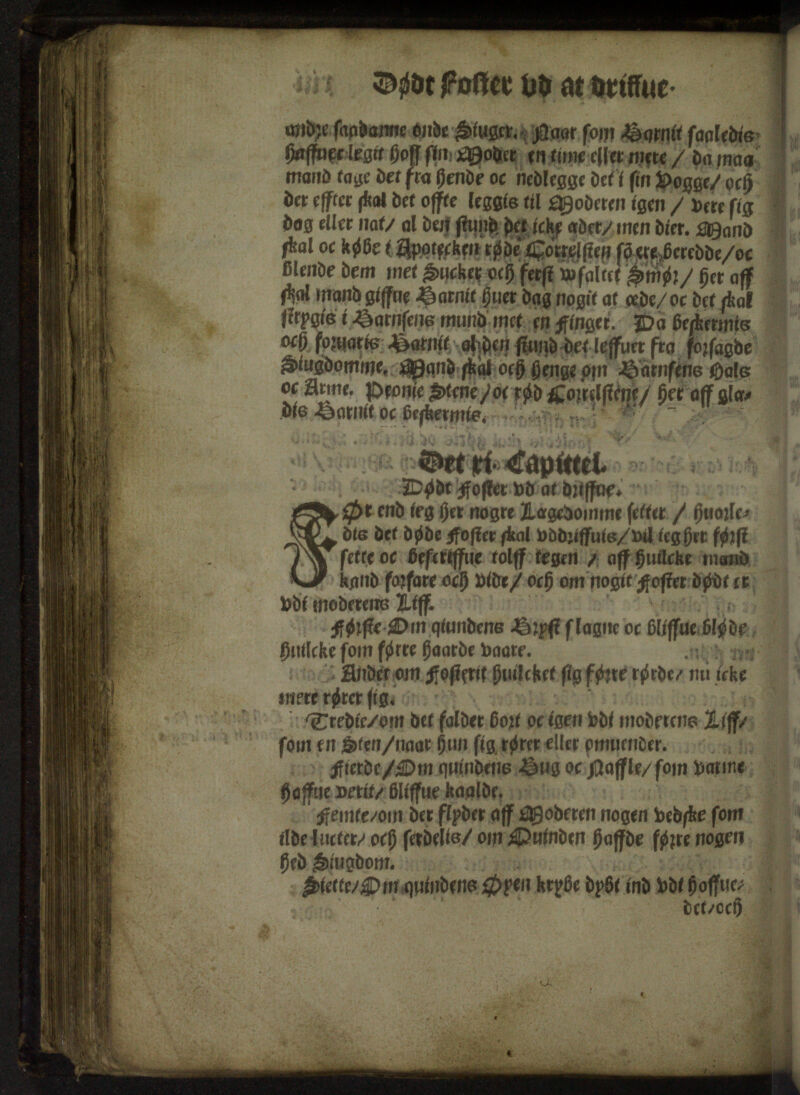 Dødt Foster vd at driffue.
saadanne onde Siuger. Naar som Barnit saaledis
haffuer legit hoss sin Moder en time eller mere / da maa
mand tage det fra hende oc nedlegge det i sin Vogge/ och
der effter skal det offte leggis til Moderen igen / vere sig
dag eller nat/ al den stund det icke æder/ men dier. Mand
skal oc købe i Apotecken røde Correlsten saare beredde/oc
blende dem met Sucker och ferst vsaltet Smør/ her aff
skal mand giffue Barnit huer dag nogit at æde/ oc det skal
strygis i Barnsens mund met en Finger. Da beskermis
och foruaris Barnit al den stund det leffuer fra forsagde
Siugdomme. Mand skal och henge om Barnsens Hals
oc Arme. Peonie Stene/oc rød Correlstene/ her aff gla-
dis Barnit oc beskermis.
Det ri. Capittel.
Dødt Foster vd at driffue.
Før end ieg her nogre Lægedomme setter / huorle-
dis det døde Foster skal vddriffuis/vil ieg her først
sette oc beskriffue tolff tegen / aff huilcke mand
kand forfare och vide/ och om nogit Foster dødt er
vdi moderens Liff.
Første Om quindens Bryst slagne oc bliffue bløde
huilcke som førre haarde vaare.
Anden om Fosterit huilcket sig førre rørde/ nu icke
mere rører sig.
Tredie/om det falder bort oc igen vdi moderens Liff/
som en Sten/naar hun sig rører eller omuender.
Fierde/Om quindens Bug oc Naffle/ som varme
haffue verit/ bliffue kaalde.
Femte/om der flyder aff Moderen nogen vedske som
ilde lucter/ och ferdelis/ om Quinden haffde førre nogen
hed Siugdom.
Siette/Om quindens Øyen krybe dybt ind vdi hoffue-
det/och